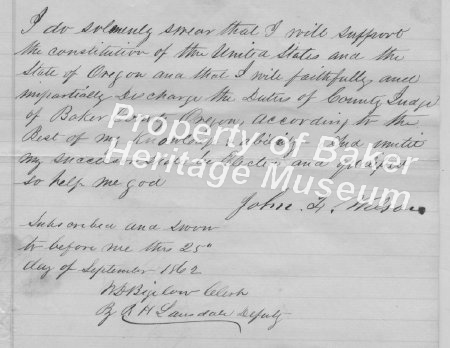 I do solmenly swear that I will support
the constitution of the United States and the
State of Oregon and that I will faithfully and
impartially Discharge the Duties of County Judge
of Baker Oregon, According to the
Best of my And untill
my successor and
so help me god
John Wilson
Subscribed and Sworn
to before me this 25"
day of September 1862
Bigelow Clerk
By R H Lansdale Deputy
Property of Baker
Heritage Museum